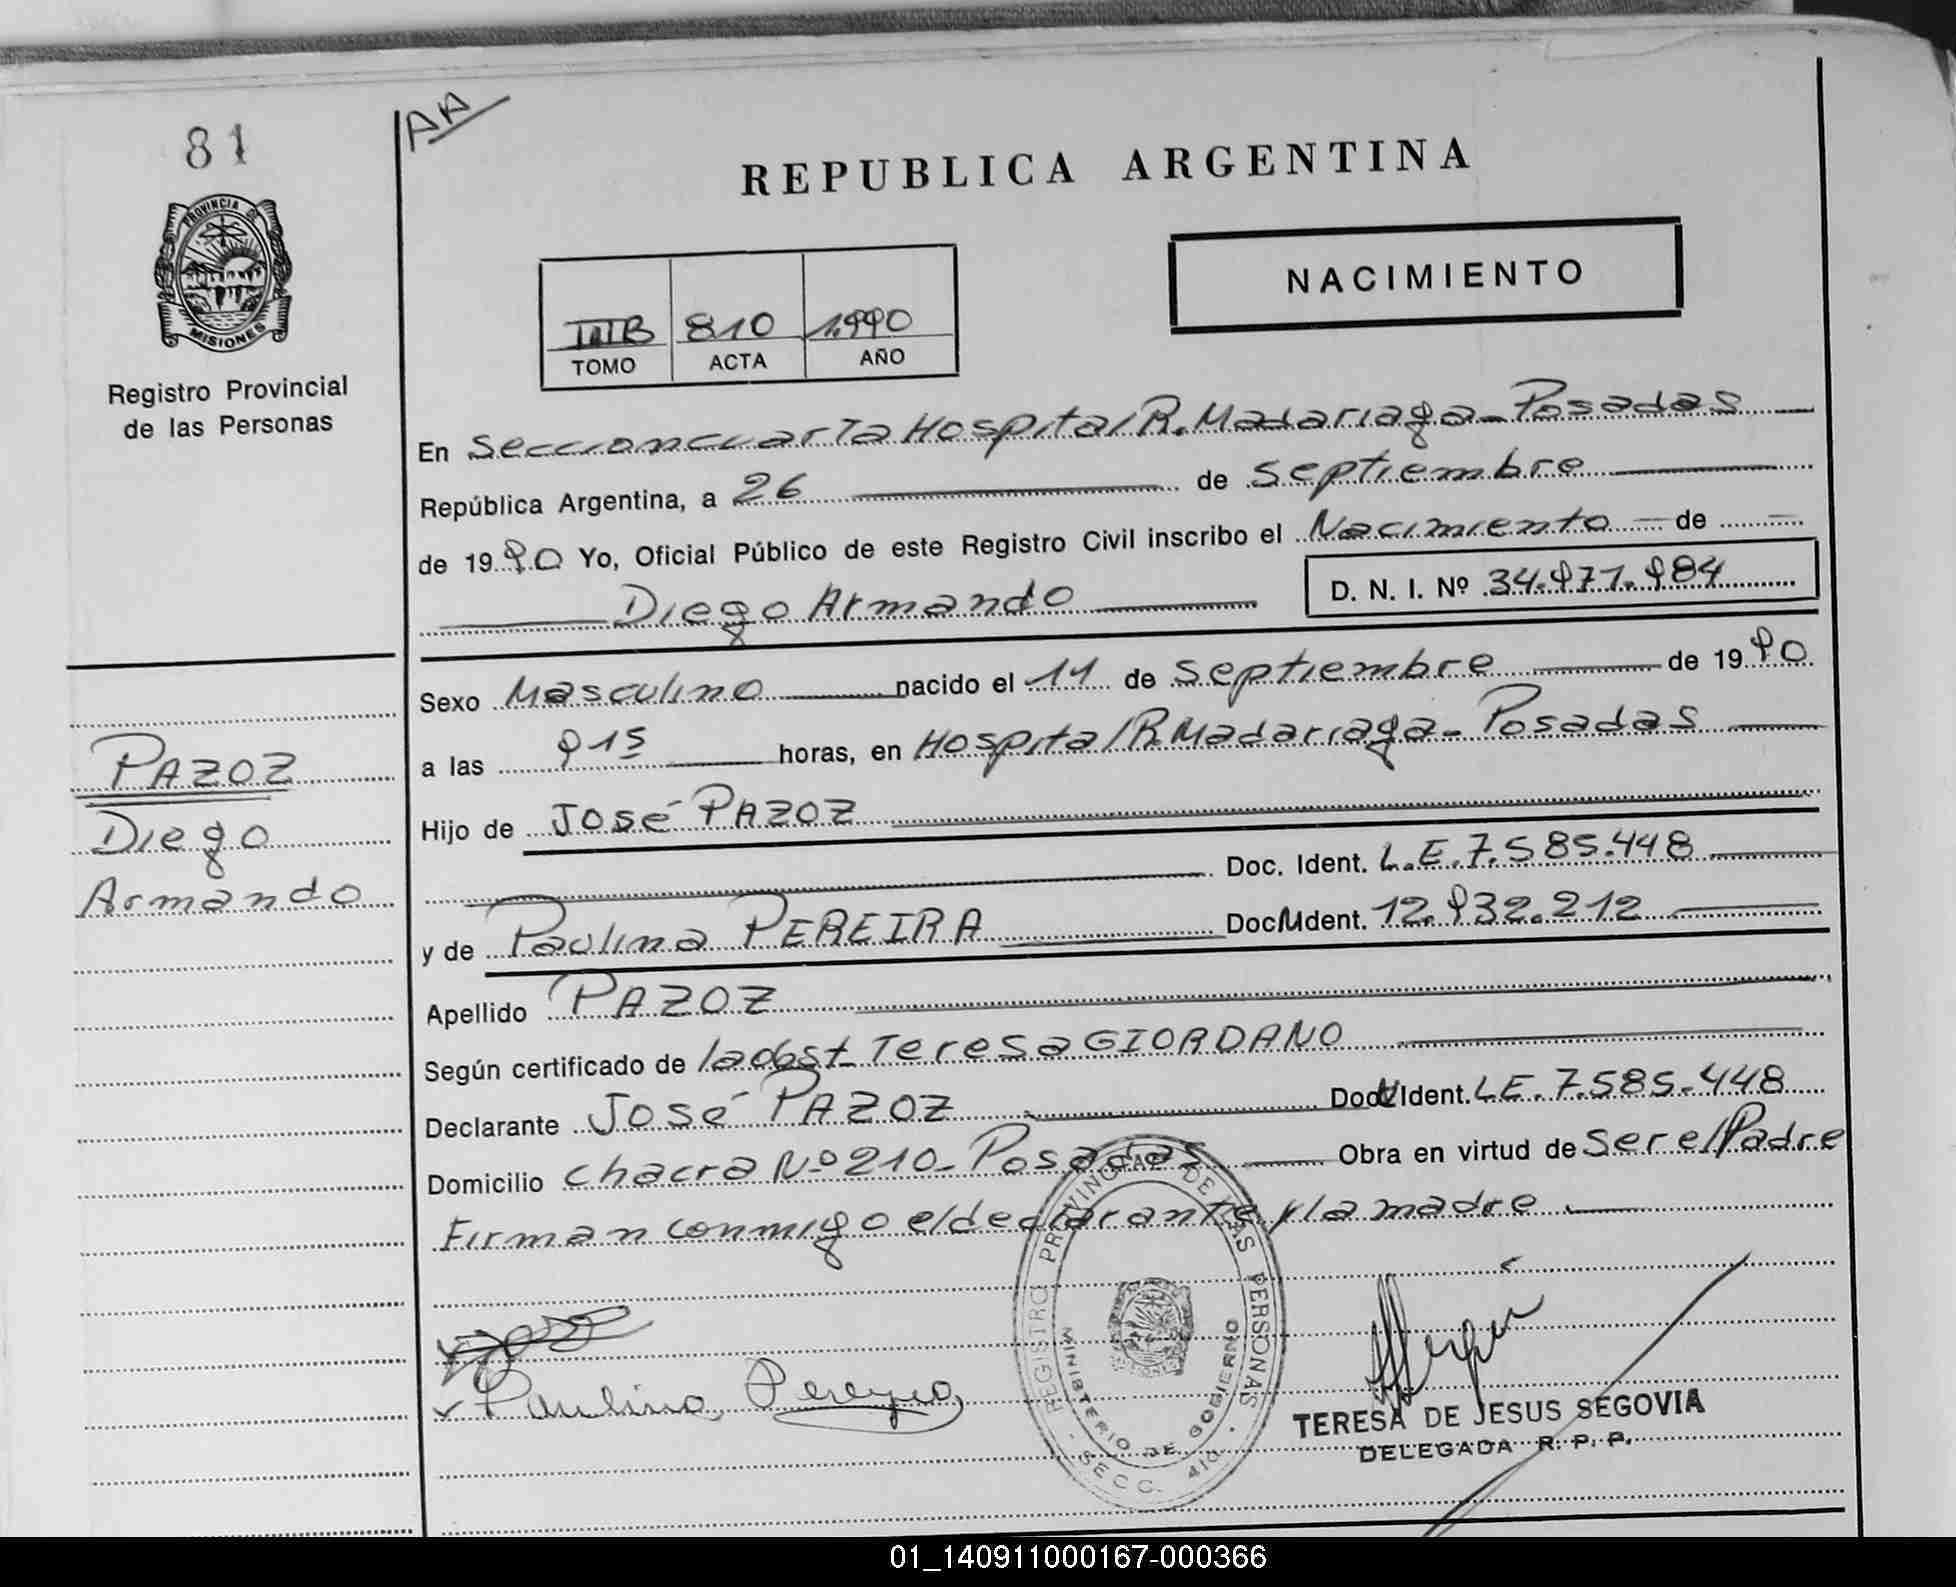 81
AA
REPUBLICA ARGENTINA
PROVINCIA DE
MISIONES
Registro Provincial
de las Personas
NACIMIENTO
810 1.990
TOMO ACTA AÑO
En Seccion cuarta Hospital R. Madariaga - Posadas
República Argentina, a 26 de Septiembre
de 1990 Yo, Oficial Público de este Registro Civil inscribo el Nacimiento de
Diego Armando D. N. I. Nº 34.971.984
Sexo Masculino nacido el 11 de Septiembre de 1990
a las 9 15 horas, en Hospital R. Madariaga - Posadas
Hijo de José PAZOZ
Doc. Ident. L.E. 7.585.448
y de Paulina PEREIRA Doc. Ident. 12.932.212
Apellido PAZOZ
Según certificado de la obst. Teresa GIORDANO
Declarante José PAZOZ Doc. Ident. L.E. 7.585.448
Domicilio Chacra Nº 210 - Posadas Obra en virtud de Ser el Padre
Firman conmigo el declarante y la madre
PAZOZ
Diego
Armando
Paulina Pereyra
REGISTRO PROVINCIAL DE LAS PERSONAS
MINISTERIO DE GOBIERNO
SECC. 4ta.
TERESA DE JESUS SEGOVIA
DELEGADA R. P. P.
01_140911000167-000366